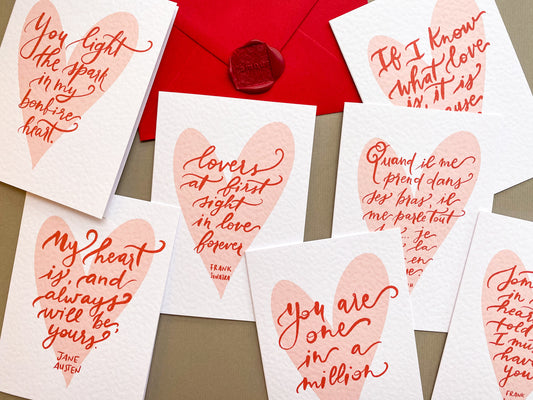 You light
the spark
in my
bonfire
heart.
If I Know
what love
is, it is
lovers
at first
sight
in love
forever
FRANK
SINATRA
Quand il me
prend dans
ses bras, il
me parle tout
je
la
en
My heart
is, and
always
will be,
yours.
JANE
AUSTEN
You are
one
in a
million
Some
in
hear
told
I mu
have
you
FRANK